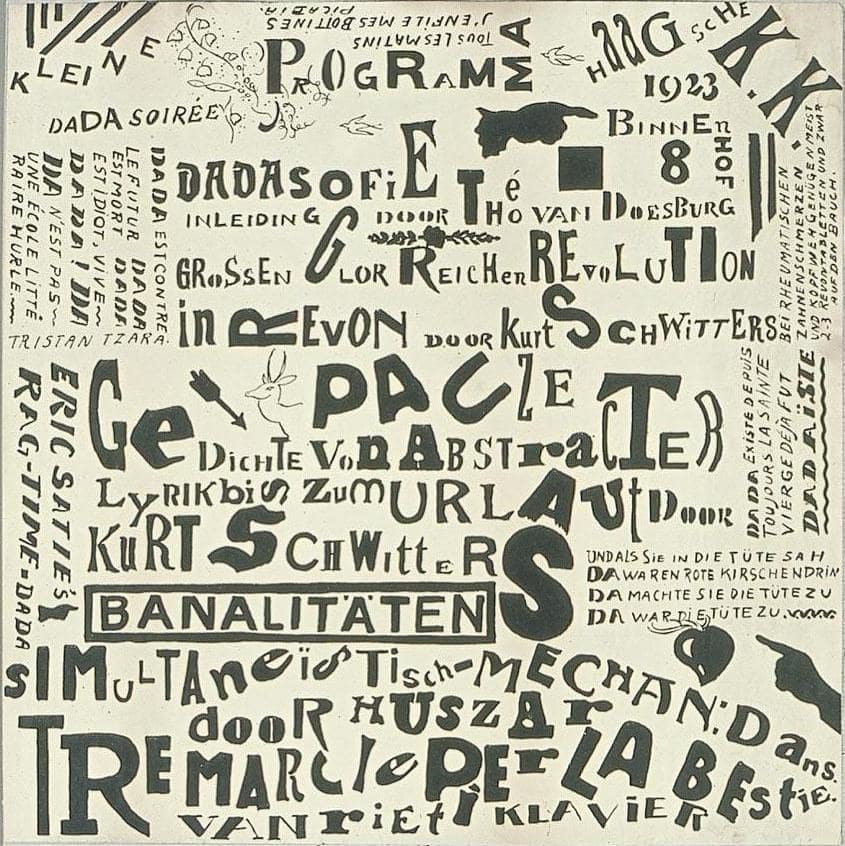 KLEINE
DADA SOIRÉE
TOUS LES MATINS
J'ENFILE MES BOTTINES
PICABIA.
PROGRAMMA
HAAGSCHE K.K.
1923
BINNENHOF
8
DADASOFIE
INLEIDING DOOR Théo VAN DOESBURG
GROSSEN GLORREICHEN REVOLUTION
in REVON DOOR Kurt SCHWITTERS
DADA EST CONTRE
LE FUTUR DADA
EST MORT DADA
EST IDIOT, VIVE
DADA! DA
DA N'EST PAS
UNE ÉCOLE LITTÉ
RAIRE HURLE
TRISTAN TZARA.
BEI RHEUMATISCHEN
ZAHNENSCHMERZEN
UND KOPFWEH GENÜGEN MEIST
2-3 REVONTABLETTEN UND ZWAR
AUF DEN BAUCH.
PAUZE
GeDICHTE VON ABSTRACTER
LYRIK bis ZUM URLAUT DOOR
KURT SCHWITTERS
BANALITÄTEN
ERIC SATIE'S
RAG-TIME=DADA
DADA EXISTE DEPUIS
TOUJOURS LA SAINTE
VIERGE DÉJÀ FUT
DADAÏSTE
UND ALS SIE IN DIE TÜTE SAH
DA WAREN ROTE KIRSCHEN DRIN
DA MACHTE SIE DIE TÜTE ZU
DA WAR DIE TÜTE ZU.
SIMULTANEÏSTisch-MECHAN: Dans.
dooR HUSZAr
TREMARCIE PER LA BEStIE.
VAN riEti KLAVIER